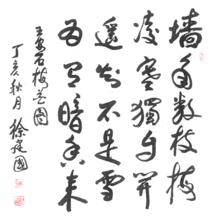 墙角数枝梅
凌寒獨自開
遥知不是雪
为有暗香来
王安石梅花
丁亥秋月 徐